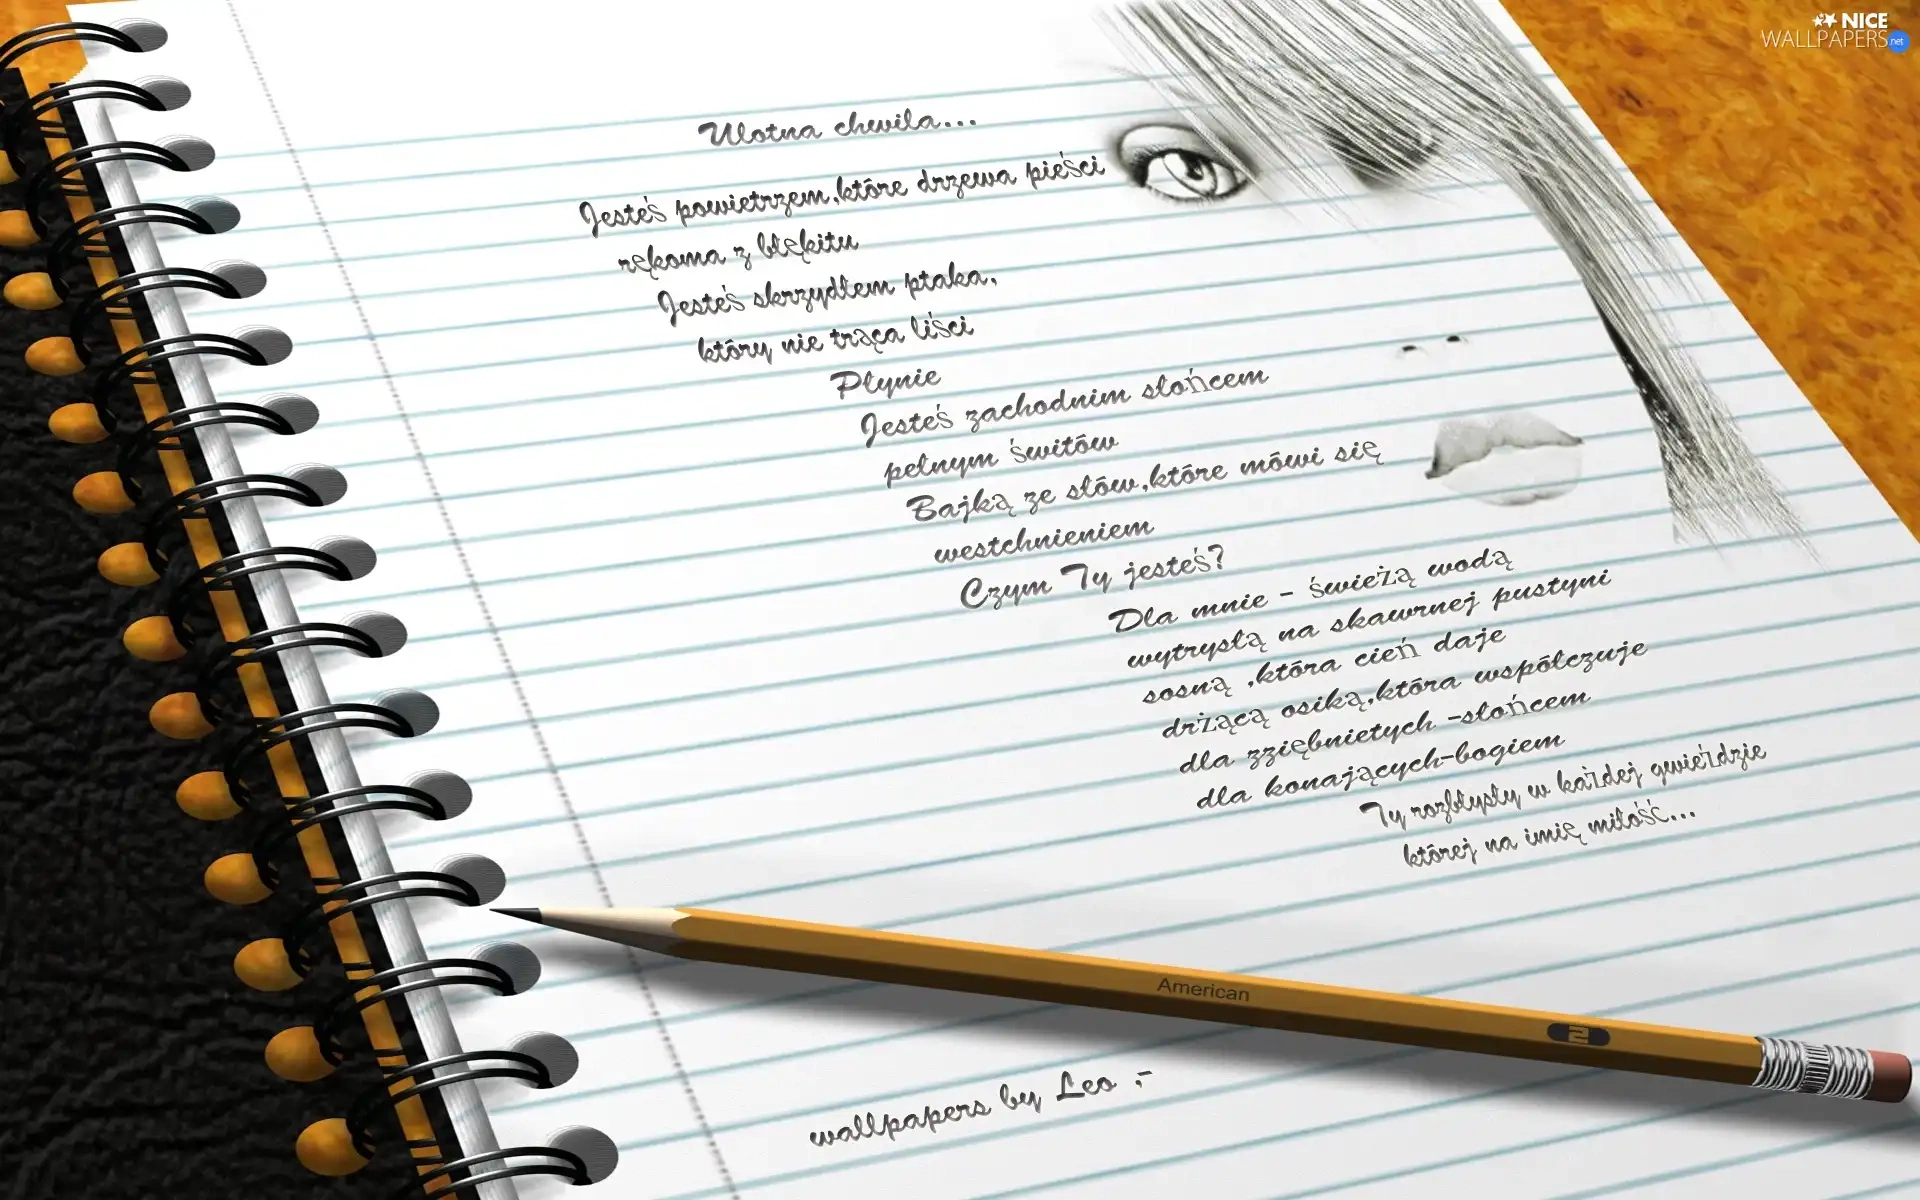 NICE
WALLPAPERS.net
Ulotna chwila...
Jesteś powietrzem,które drzewa pieści
rękoma z błękitu
Jesteś skrzydłem ptaka,
który nie trąca liści
Płynie
Jesteś zachodnim słońcem
pełnym świtów
Bajką ze słów,które mówi się
westchnieniem
Czym Ty jesteś?
Dla mnie - świeżą wodą
wytrysłą na skawrnej pustyni
sosną ,która cień daje
drżącą osiką,która współczuje
dla zziębnietych -słońcem
dla konających-bogiem
Ty rozbłysły w każdej gwieździe
której na imię miłość...
American
2
wallpapers by Leo ;-